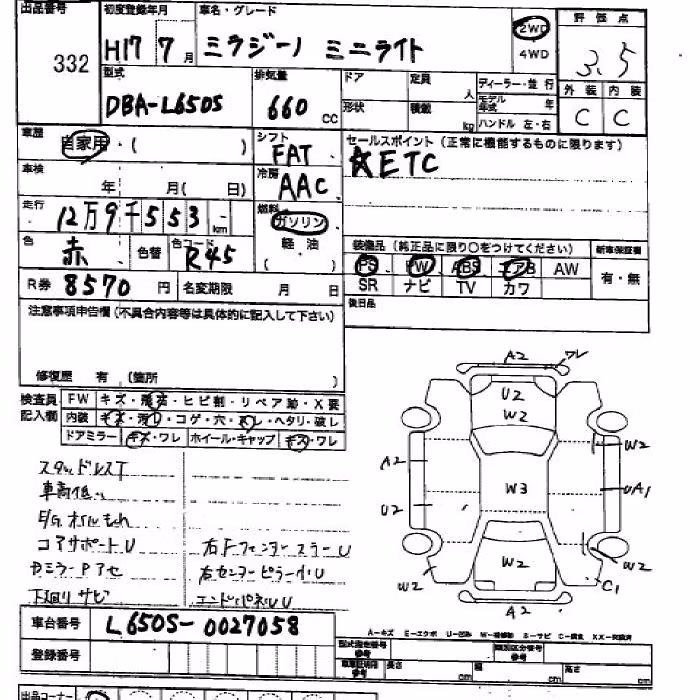 出品番号 332
初度登録年月 H17 7月
車名・グレード ミラジーノ ミニライト
2WD 4WD
評価点 3.5
外装 内装
C C
型式 DBA-L650S
排気量 660 CC
ドア 形状
定員 人
積載 kg
ディーラー・並行
モデル年式 年
ハンドル 左・右
車歴 自家用・( )
シフト FAT
セールスポイント (正常に機能するものに限ります)
★ETC
車検 年 月( 日)
冷房 AAC
走行 12万9千553 km
燃料 ガソリン 軽油 ( )
色 赤 色替 色コード R45
装備品 (純正品に限り○をつけてください) 新車保証書
PS PW ABS エアB AW 有・無
SR ナビ TV カワ
R券 8570円 名変期限 月 日
後日品
注意事項申告欄(不具合内容等は具体的に記入して下さい)
修復歴 有 (箇所 )
検査員記入欄
FW キズ・飛石・ヒビ割・リペア跡・X要
内装 キズ・汚れ・コゲ・穴・スレ・ヘタリ・破レ
ドアミラー キズ・ワレ ホイール・キャップ キズ・ワレ
スタッドレスT
車高低い
E/Gオイルもれ
コアサポートU 右FフェンダーステーU
右センターピラー小U
下廻りサビ エンドパネルU
A2 ワレ
U2
W2
A2 W2
W3 UA1
U2
W2 W2 W2
C1
A2
A-キズ E-エクボ U-凹み W-補修跡 S-サビ C-腐食 XX-交換済
車台番号 L650S-0027058
登録番号
型式指定番号 参考 類別区分番号 参考
車車証明用 参考 長さ cm 幅 cm 高さ cm
出品コーナー